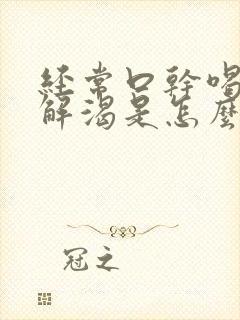 經常口幹喝
解渴是怎麼
冠之